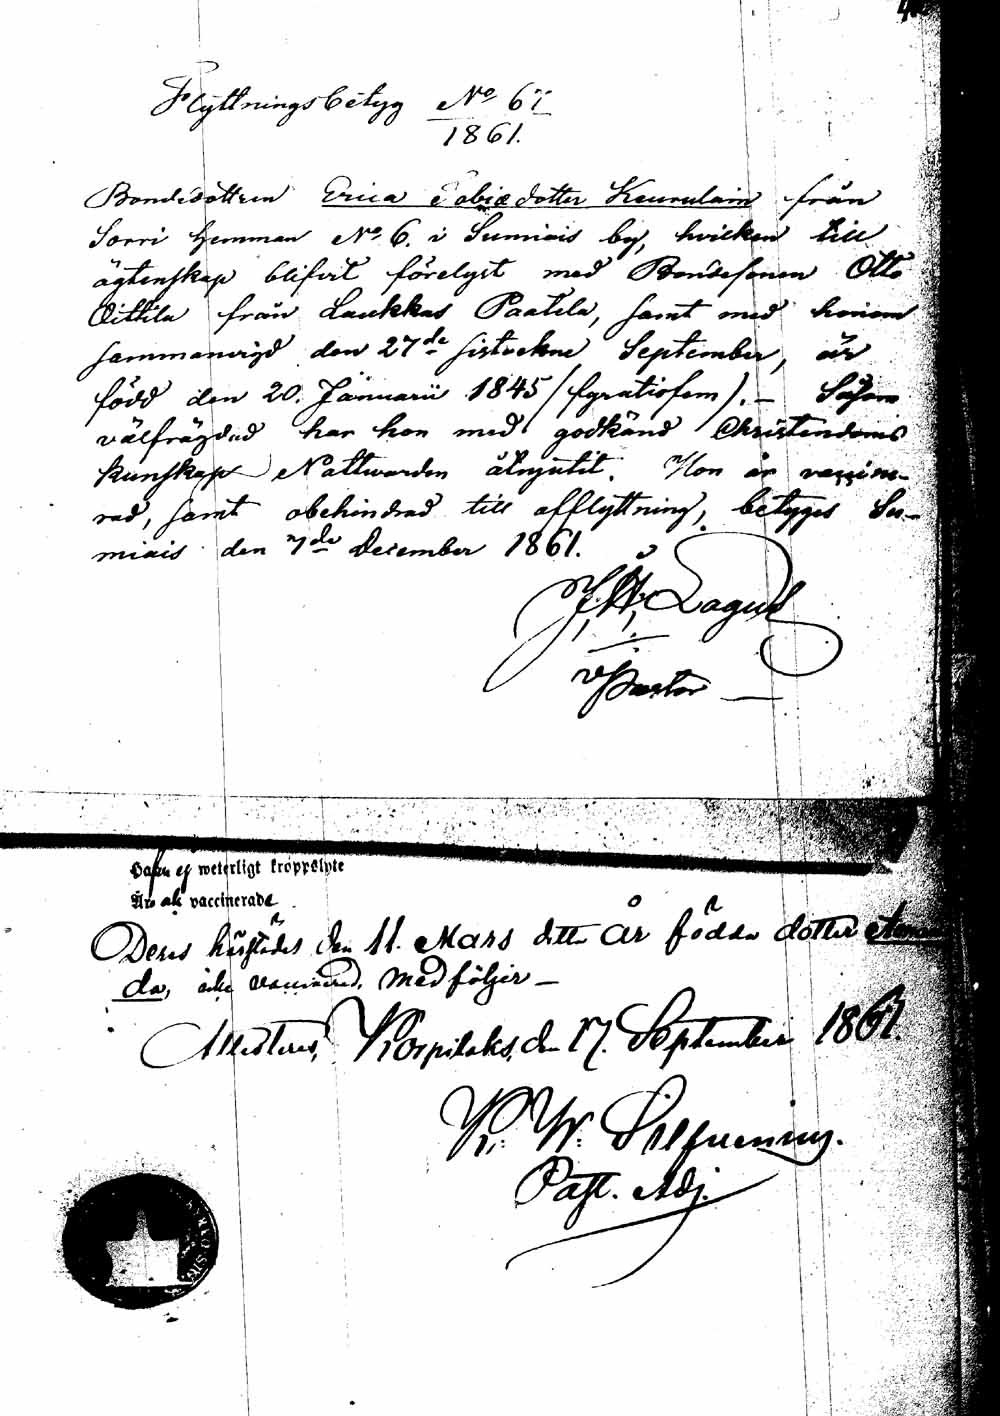 Flyttningsbetyg No 61
1861.
Bondedottren Erica Tobiædotter Keurulain från
Sorri hemman No 6. i Sumiais by, hvilken till
ägtenskap blifvit förelyst med Bondesonen Otto
Oittila från Laukkas Paatela, samt med honom
sammanvigd den 27de sistvekne September, är
född den 20. Januarii 1845 (fyratiofem). – Såsom
välfrägdad har hon med godkänd Christendoms
kunskap Nattwarden åtnjutit. Hon är vaccine-
rad, samt obehindrad till afflyttning, betyges Su-
miais den 7de December 1861.
J. W. Lagus
v Pastor
Hafva ej weterligt kroppslyte
Äro ak vaccinerade
Deras härstädes den 11. Mars detta år födda dotter Aman
da, icke vaccinerad, medföljer –
Attesteras, Korpilaks, den 17. September 1861.
K. W. Silfvening.
Past. Adj.